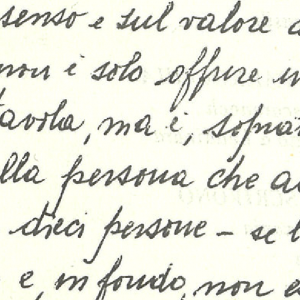 senso e sul valore d
non è solo offrire u
tavola, ma è, sopra
lla persona che a
dieci persone - se l
e, in fondo, non e